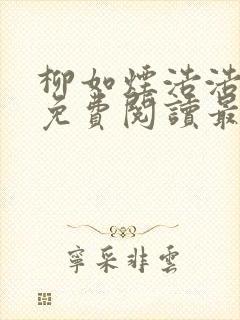 柳如煙浩浩
免費閱讀最
寧采非雲